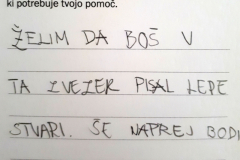 ki potrebuje tvojo pomoč.
ŽELIM DA BOŠ V
TA ZVEZEK PISAL LEPE
STVARI. ŠE NAPREJ BODI